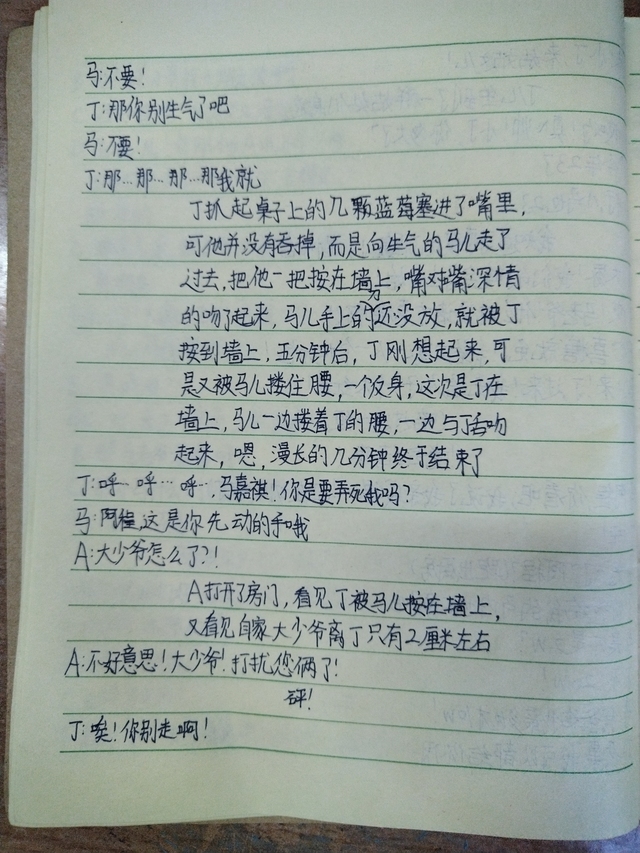 马:不要!
丁:那你别生气了吧
马:不要!
丁:那…那…那…那我就
丁抓起桌子上的几颗蓝莓塞进了嘴里,
可他并没有吞掉,而是向生气的马儿走了
过去,把他一把按在墙上,嘴对嘴深情
的吻了起来,马儿手上的还没放,就被丁
按到墙上,五分钟后,丁刚想起来,可
是又被马儿搂住腰,一个反身,这次是丁在
墙上,马儿一边搂着丁的腰,一边与丁舌吻
起来,嗯,漫长的几分钟终于结束了
丁:呼…呼…呼…,马嘉祺!你是要弄死我吗?
马:阿程,这是你先动的手哦
A:大少爷怎么了?!
A打开了房门,看见丁被马儿按在墙上,
又看见自家大少爷离丁只有2厘米左右
A:不好意思!大少爷!打扰您俩了!
砰!
丁:唉!你别走啊!